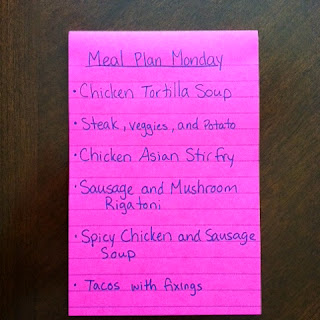 Meal Plan Monday
· Chicken Tortilla Soup
· Steak, veggies, and Potato
· Chicken Asian Stirfry
· Sausage and Mushroom
Rigatoni
· Spicy Chicken and Sausage
Soup
· Tacos with fixings